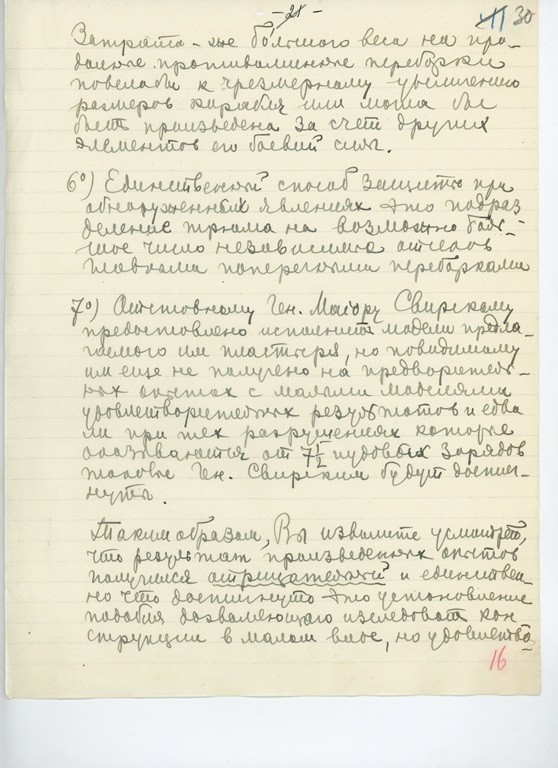 -28-
30
Затрата-же большого веса на про-
дольные противоминные переборки
повела бы к чрезмерному увеличению
размеров корабля или могла бы
быть произведена за счет других
элементов его боевой силы.
6°) Единственный способ защиты при
обнаруженных явлениях это подраз
деление трюма на возможно боль-
шое число независимых отсеков
главными поперечными переборками
7°) Отставному Ген. Майору Свирскому
предоставлено исполнить модели предла-
гаемого им пластыря, но повидимому
им еще не получено на предваритель-
ных опытах с малыми моделями
удовлетворительных результатов и едва
ли при тех разрушениях которые
оказываются от 7½ пудовых зарядов
таковые Ген. Свирским будут достиг-
нуты.
Таким образом, Вы изволите усмотреть,
что результат произведенных опытов
получился отрицательный и единствен-
но что достигнуто это установление
подобия дозволяющего изследовать кон
струкции в малом виде, но удовлетво-
16